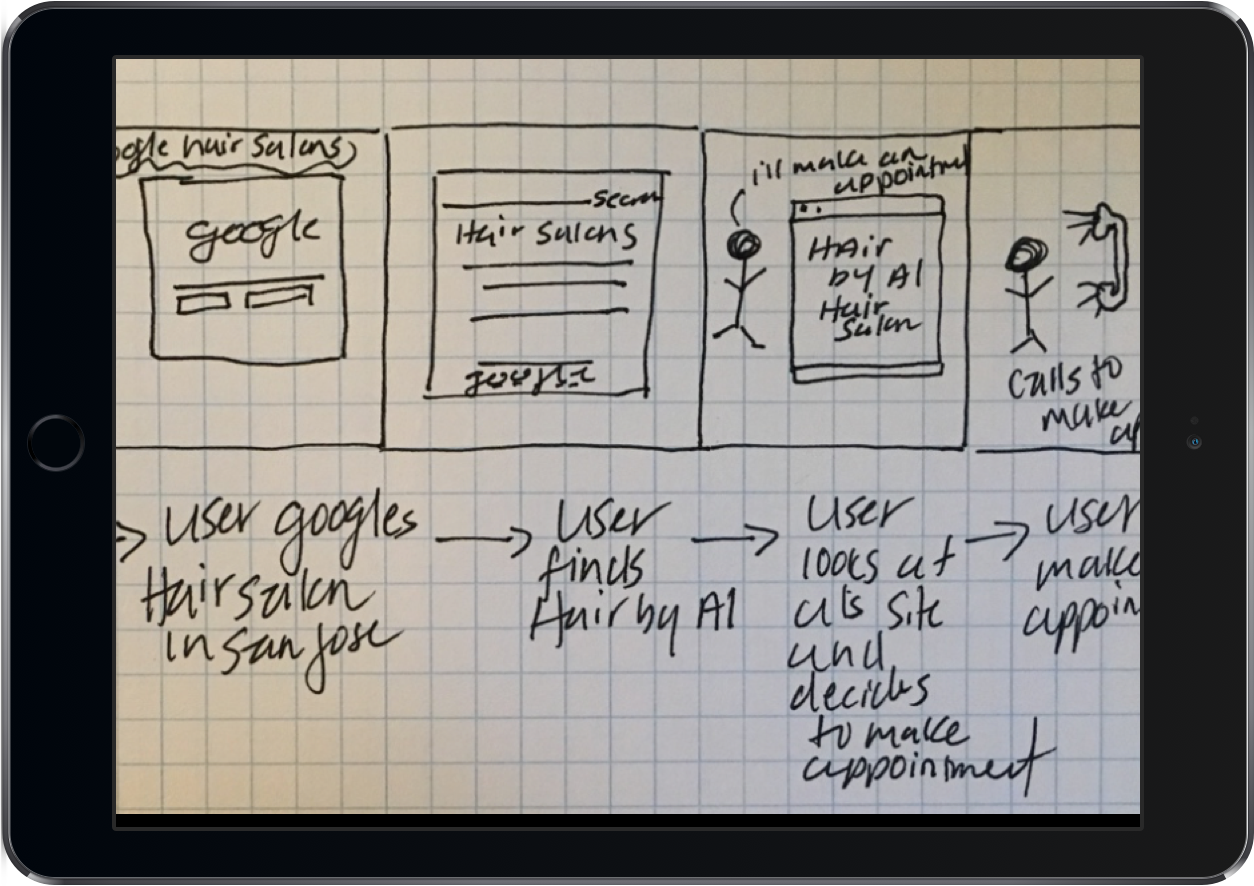 ogle hair salons
google
Search
Hair salons
google
i'll make an
appointment
HAir
by Al
Hair
Salon
Calls to
make
ap
User googles
Hair salon
in San Jose
User
finds
Hair by Al
User
looks at
als site
and
decides
to make
appointment
User
make
appoin